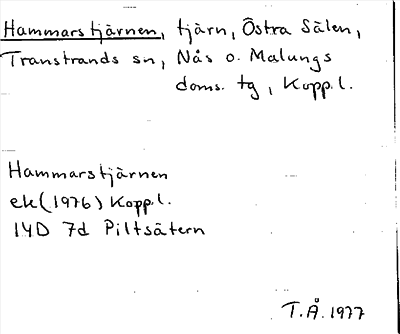 Hammarstjärnen, tjärn, Östra Sälen,
Transtrands sn, Nås o. Malungs
doms. tg, Kopp.l.
Hammarstjärnen
ek (1976) Kopp.l.
14D 7d Piltsätern
T.Å. 1977